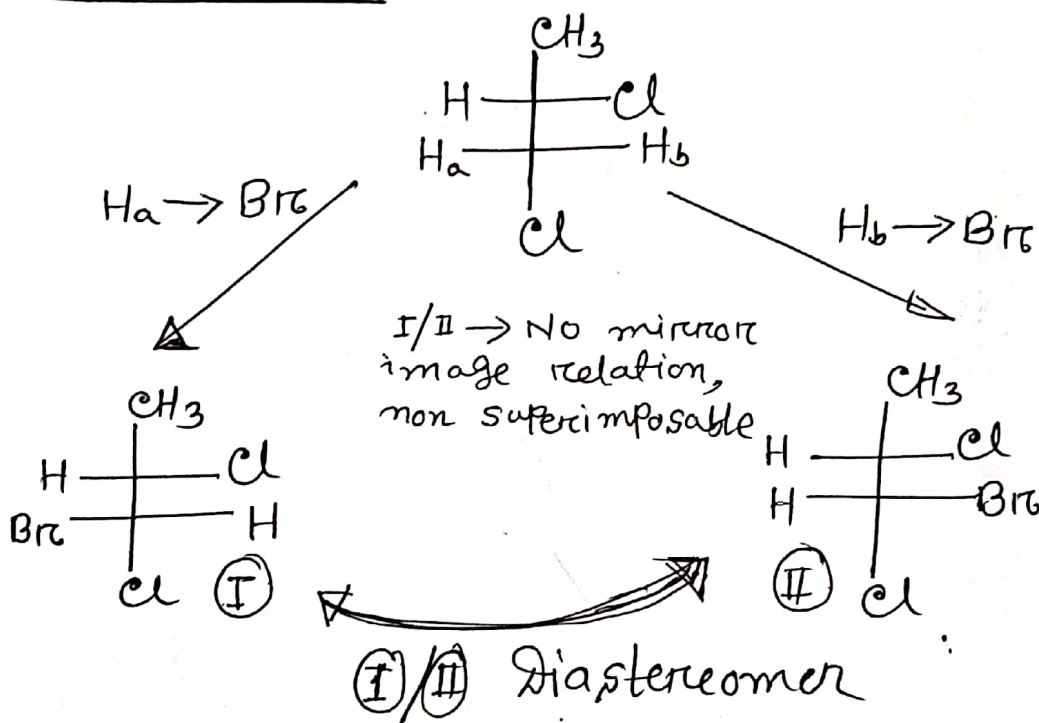 CH3
H Cl
Ha Hb
Cl
Ha → Br
Hb → Br
I/II → No mirror
image relation,
non superimposable
CH3
H Cl
Br H
Cl I
CH3
H Cl
H Br
II Cl
I/II Diastereomer